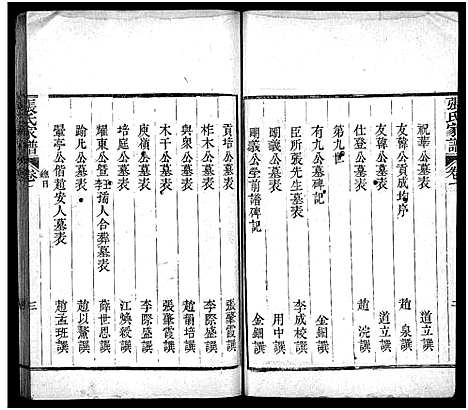 張氏家譜 卷一 二
祝華公墓表 道立譔
友韓公貢成均序 趙泉譔
友韓公墓表 道立譔
仕登公墓表 趙浣譔
第九世
有九公墓碑記 金鋼譔
臣所張先生墓表 李成校譔
明義公墓表 用中譔
明義公学前譜碑記 金鋼譔
貢培公墓表 張肇霞譔
柞木公墓表 李際盛譔
與泉公墓表 趙蘭培譔
木干公墓表 張肇霞譔
庾嶺公墓表 李際盛譔
培庭公墓表 江煥綬譔
耀東公暨孺人合葬墓表 薛世恩譔
踰凡公墓表 趙以鰲譔
翬亭公偕趙安人墓表 趙孟班譔
張氏家譜 卷一 總目 三